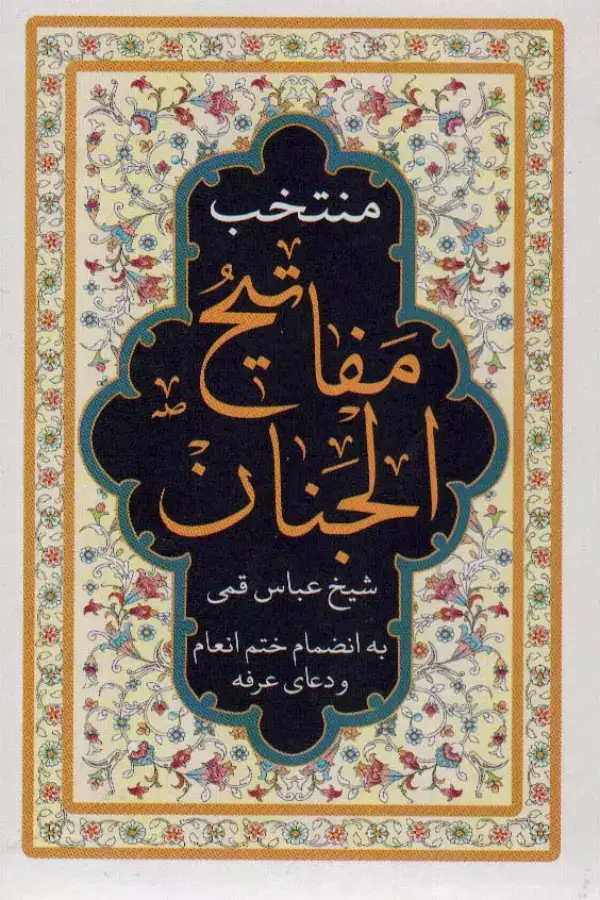 منتخب
مَفاتیحُ
الجَنان
شیخ عباس قمی
به انضمام ختم انعام
و دعای عرفه